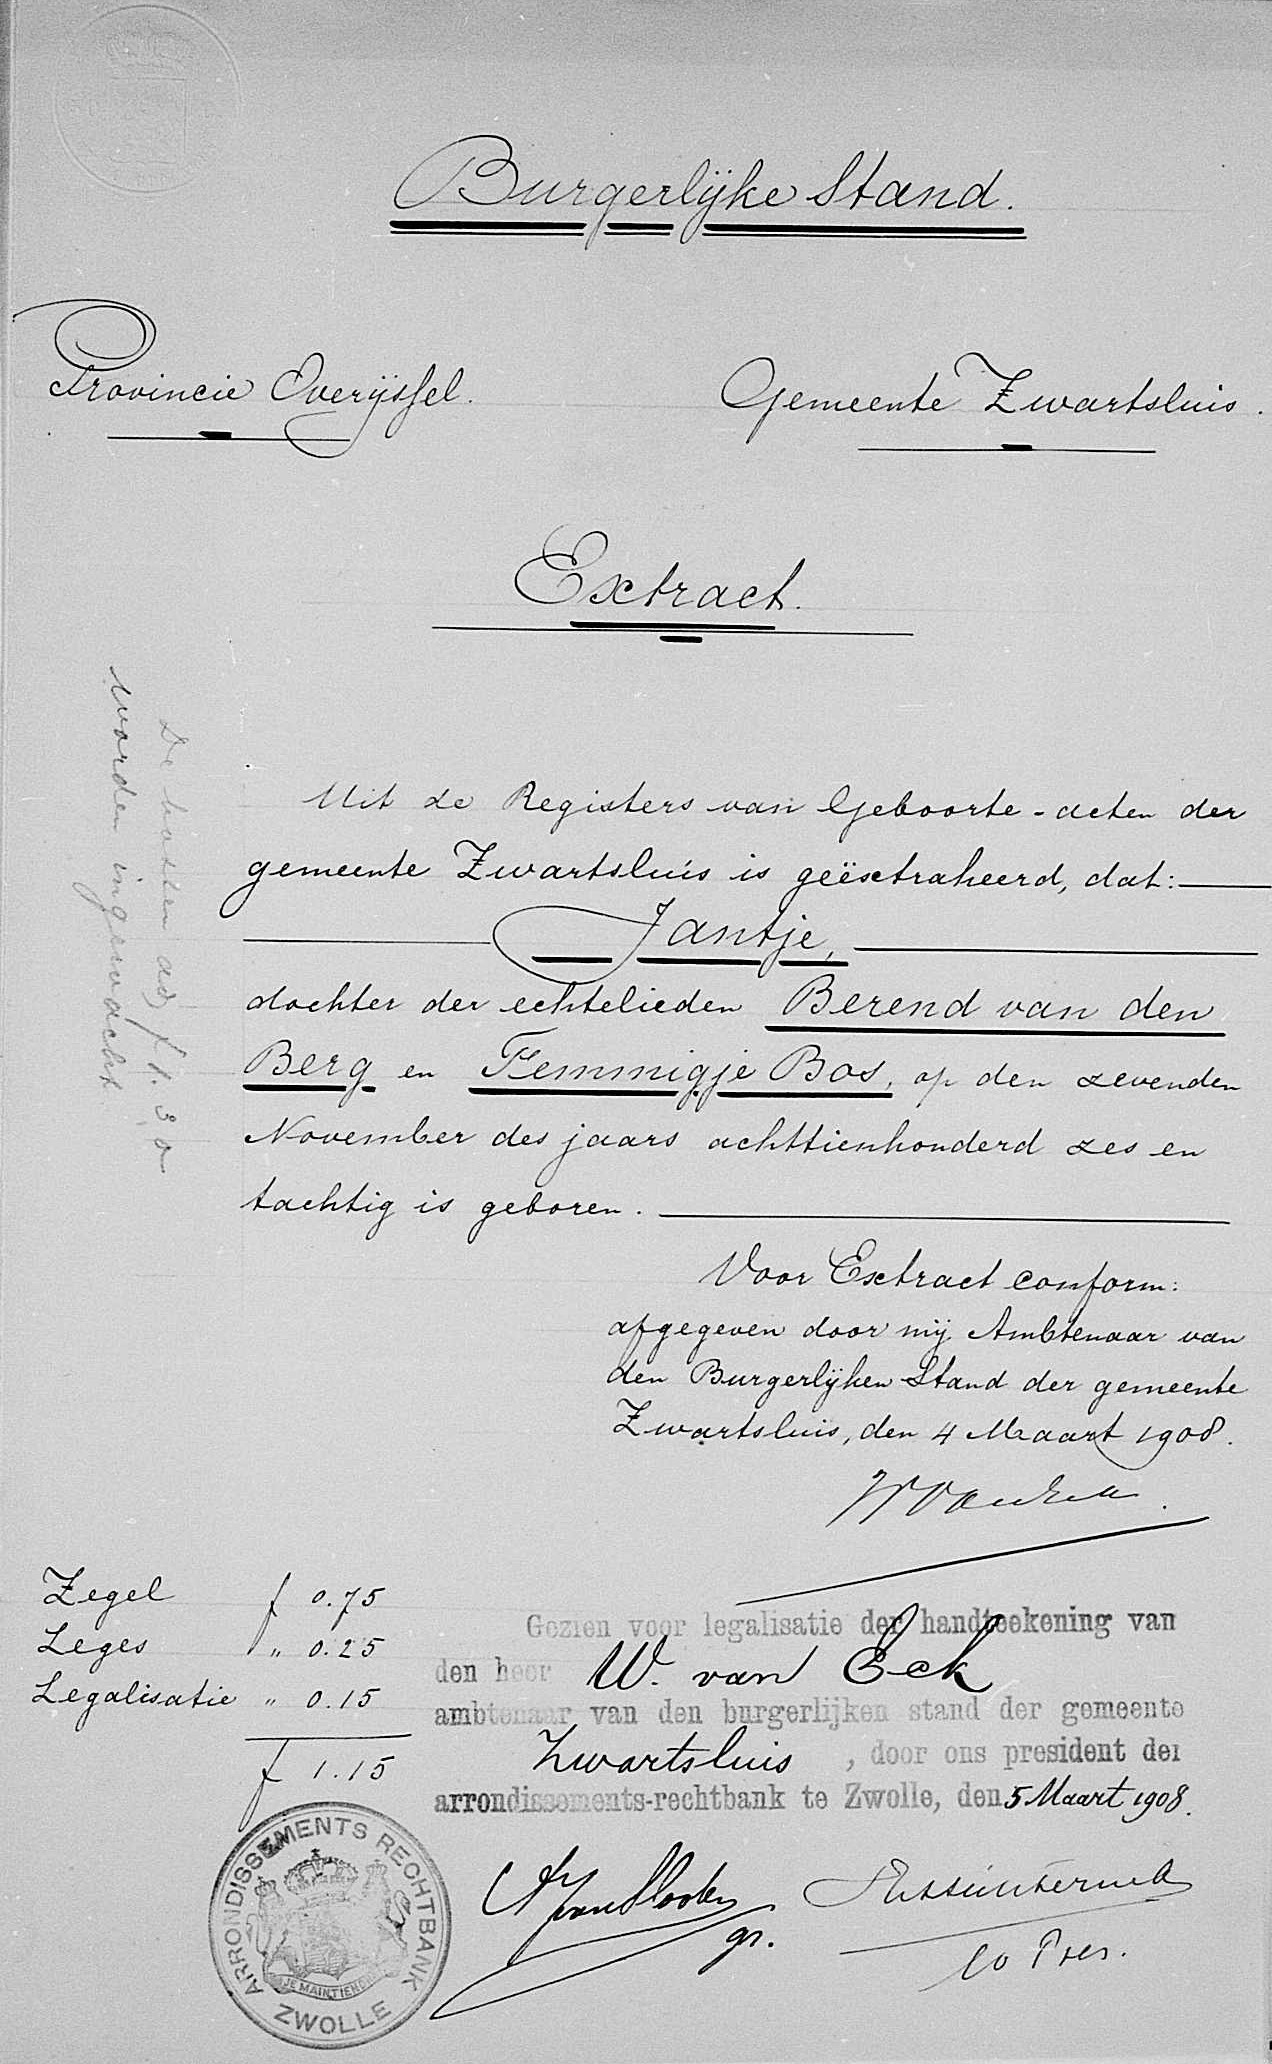 Burgerlijke Stand.
Provincie Overijssel.
Gemeente Zwartsluis.
Extract.
De kosten ad f 1.30
worden ingewacht
Uit de Registers van Geboorte-acten der
gemeente Zwartsluis is geëxtraheerd, dat:
Jantje,
dochter der echtelieden Berend van den
Berg en Femmigje Bos, op den zevenden
November des jaars achttienhonderd zes en
tachtig is geboren.
Voor Extract conform:
afgegeven door mij Ambtenaar van
den Burgerlijken Stand der gemeente
Zwartsluis, den 4 Maart 1908.
WvanEck
Zegel f 0.75
Leges " 0.25
Legalisatie " 0.15
f 1.15
Gezien voor legalisatie der handteekening van
den heer W. van Eck
ambtenaar van den burgerlijken stand der gemeente
Zwartsluis, door ons president der
arrondissements-rechtbank te Zwolle, den 5 Maart 1908.
gr.
Pres.
ARRONDISSEMENTS RECHTBANK
JE MAINTIENDRAI
ZWOLLE